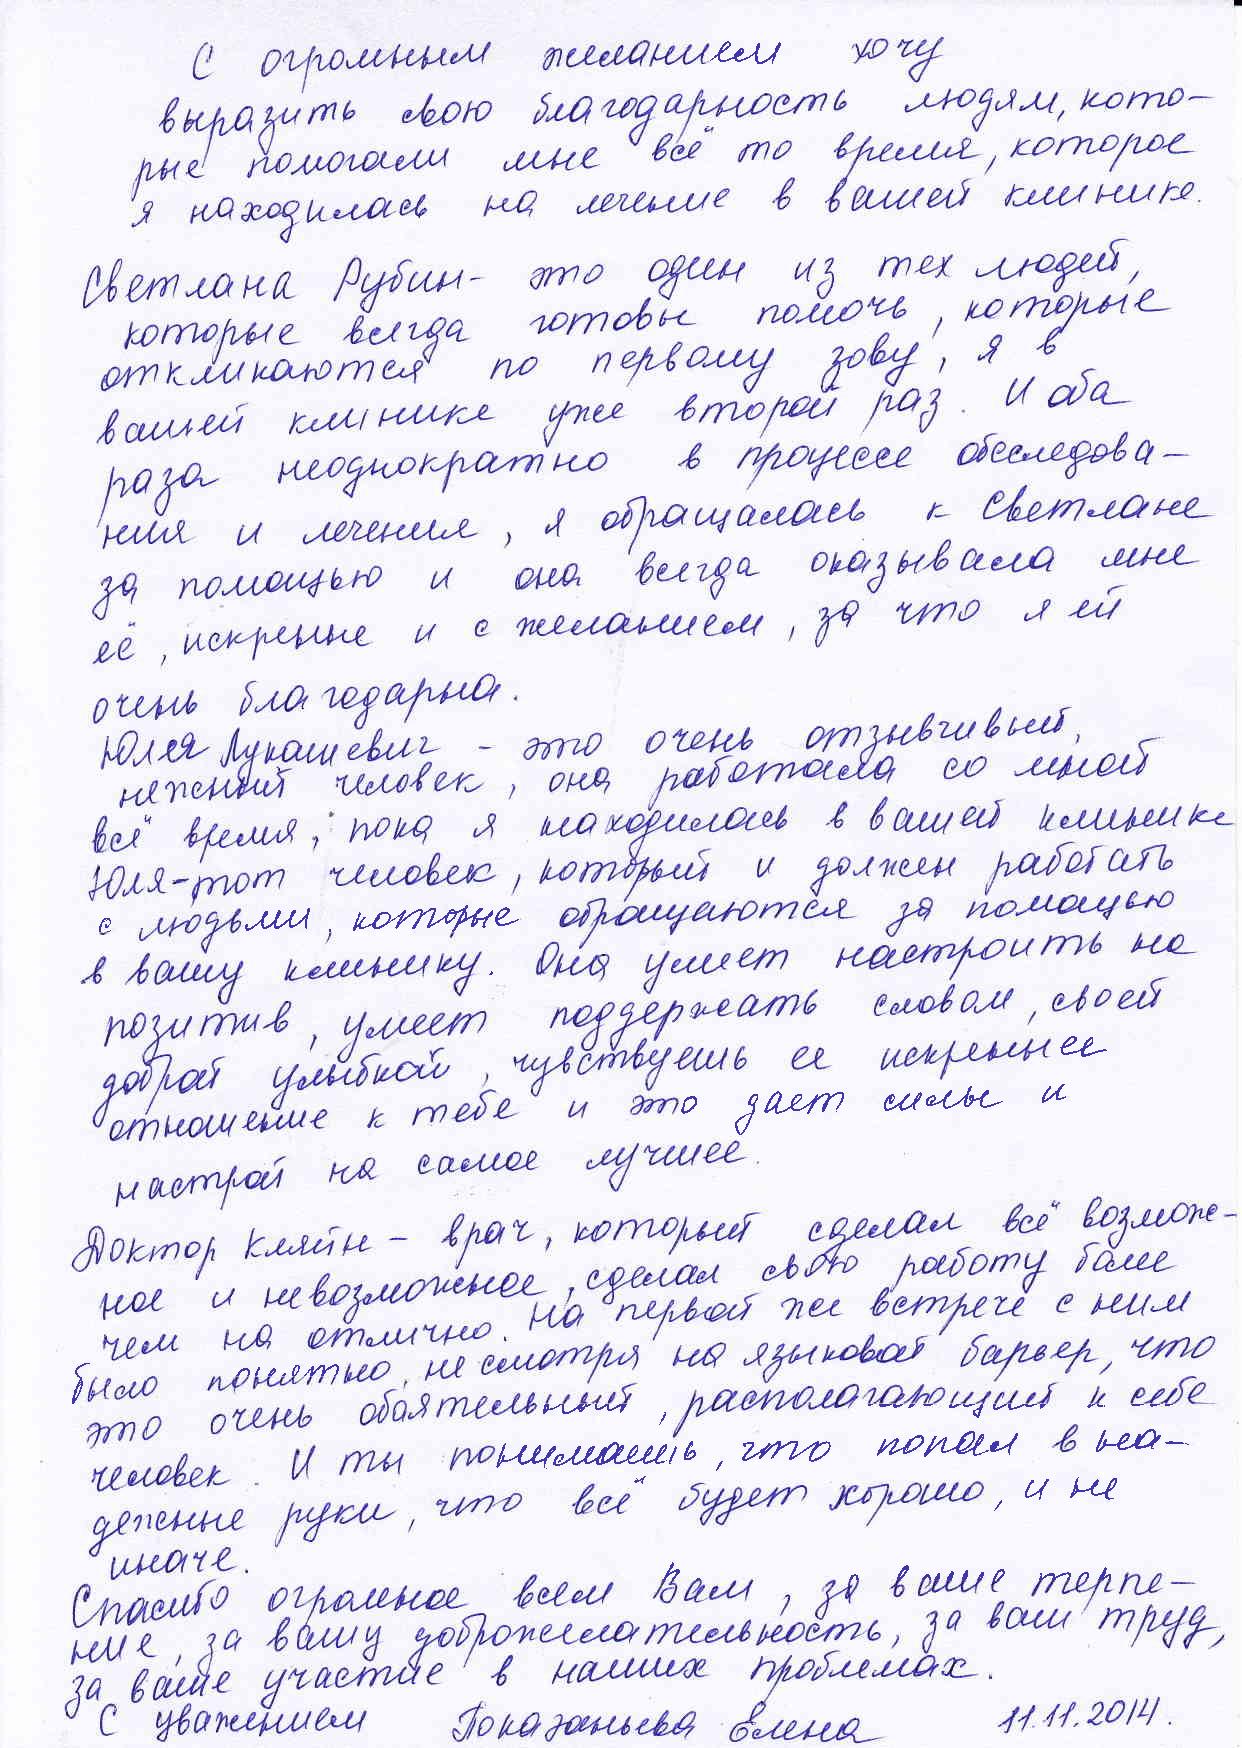 С огромным желанием хочу
выразить свою благодарность людям, кото-
рые помогали мне всё то время, которое
я находилась на лечение в вашей клинике.
Светлана Рубин - это один из тех людей,
которые всегда готовы помочь, которые
откликаются по первому зову, я в
вашей клинике уже второй раз. И оба
раза неоднократно в процессе обследова-
ния и лечения, я обращалась к Светлане
за помощью и она всегда оказывала мне
её, искренне и с желанием, за что я ей
очень благодарна.
Юлея Лукашевич - это очень отзывчивый,
нежный человек, она работала со мной
всё время, пока я находилась в вашей клинике
Юля - тот человек, который и должен работать
с людьми, которые обращаются за помощью
в вашу клинику. Она умеет настроить на
позитив, умеет поддержать словом, своей
доброй улыбкой, чувствуешь ее искреннее
отношение к тебе и это дает силы и
настрой на самое лучшее.
Доктор Кляйн - врач, который сделал всё возмож-
ное и невозможное, сделал свою работу более
чем на отлично. На первой же встрече с ним
было понятно, не смотря на языковой барьер, что
это очень обаятельный, располагающий к себе
человек. И ты понимаешь, что попал в на-
дежные руки, что всё будет хорошо, и не
иначе.
Спасибо огромное всем Вам, за ваше терпе-
ние, за вашу доброжелательность, за ваш труд,
за ваше участие в наших проблемах.
С уважением Елена 11.11.2014.